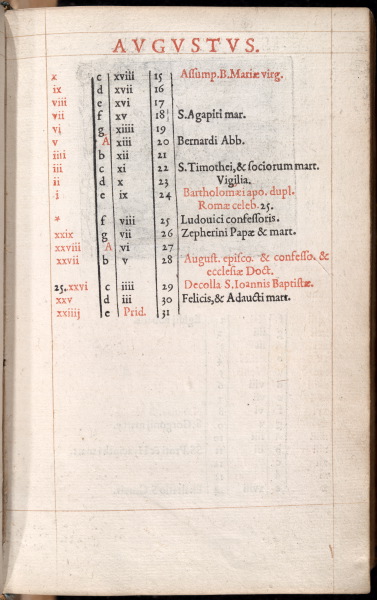 AVGVSTVS.
x c xviii 15 Assump.B.Mariæ virg.
ix d xvii 16
viii e xvi 17
vii f xv 18 S.Agapiti mar.
vi g xiiii 19
v A xiii 20 Bernardi Abb.
iiii b xii 21
iii c xi 22 S.Timothei,& sociorum mart.
ii d x 23 Vigilia.
i e ix 24 Bartholomæi apo. dupl.
Romæ celeb.25.
* f viii 25 Ludouici confessoris.
xxix g vii 26 Zepherini Papæ & mart.
xxviii A vi 27
xxvii b v 28 August. episco. & confesso. &
ecclesiæ Doct.
25.xxvi c iiii 29 Decolla S.Ioannis Baptistæ.
xxv d iii 30 Felicis,& Adaucti mart.
xxiiij e Prid. 31